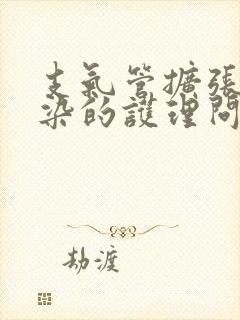 支氣管擴張
染的護理問
劫渡